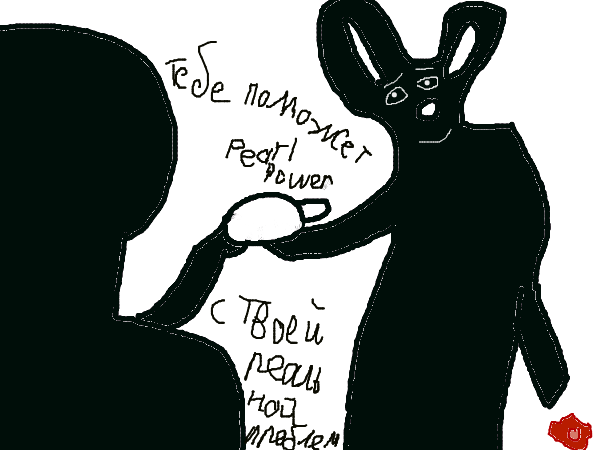 Тебе поможет
Pearl
Power
с твоей
реаль
ной
проблем